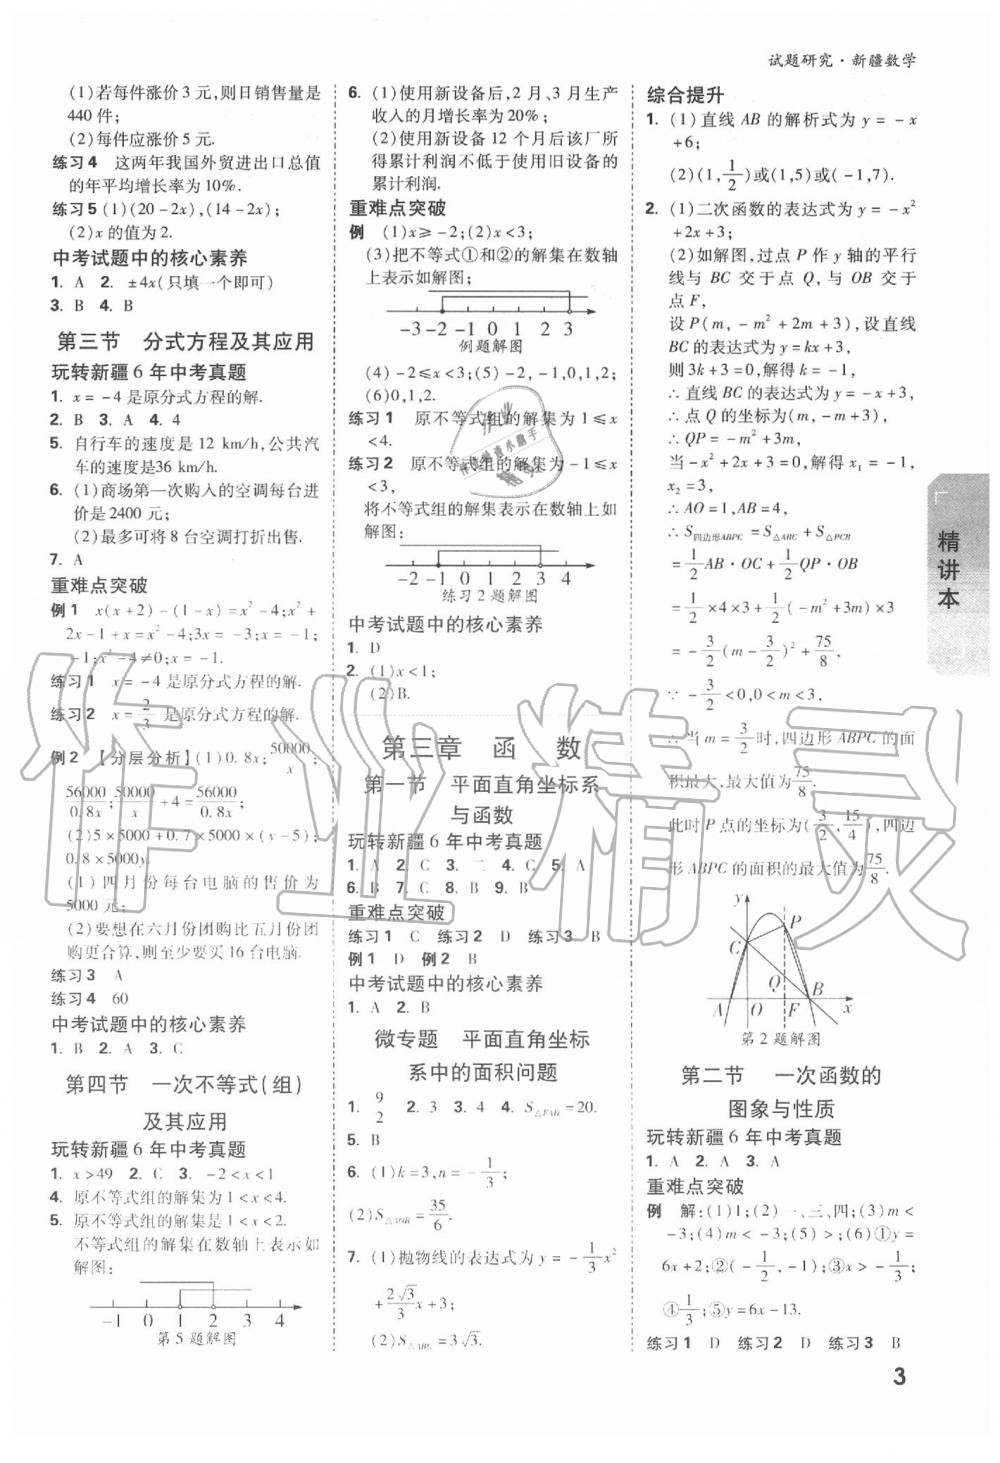 试题研究·新疆数学
(1)若每件涨价3元,则日销售量是
440件;
(2)每件应涨价5元.
练习4 这两年我国外贸进出口总值
的年平均增长率为10%.
练习5 (1)(20-2x),(14-2x);
(2)x的值为2.
中考试题中的核心素养
1. A 2. ±4x(只填一个即可)
3. B 4. B
第三节 分式方程及其应用
玩转新疆6年中考真题
1. x=-4是原分式方程的解.
2. B 3. A 4. 4
5. 自行车的速度是12 km/h,公共汽
车的速度是36 km/h.
6. (1)商场第一次购入的空调每台进
价是2400元;
(2)最多可将8台空调打折出售.
7. A
重难点突破
例1 x(x+2)-(1-x)=x²-4;x²+
2x-1+x=x²-4;3x=-3;x=
-1;x²-4≠0;x=-1.
练习1 x=-4是原分式方程的解.
练习2 x=2/3是原分式方程的解.
例2 【分层分析】(1)0.8x;50000/x;
56000/0.8x;50000/x+4=56000/0.8x;
(2)5×5000+0.7×5000×(y-5);
0.8×5000y.
(1)四月份每台电脑的售价为
5000元;
(2)要想在六月份团购比五月份团
购更合算,则至少要买16台电脑.
练习3 A
练习4 60
中考试题中的核心素养
1. B 2. A 3. C
第四节 一次不等式(组)
及其应用
玩转新疆6年中考真题
1. x>49 2. C 3. -2<x<1
4. 原不等式组的解集为1<x<4.
5. 原不等式组的解集是1<x<2.
不等式组的解集在数轴上表示如
解图:
-1 0 1 2 3 4
第5题解图
6. (1)使用新设备后,2月、3月生产
收入的月增长率为20%;
(2)使用新设备12个月后该厂所
得累计利润不低于使用旧设备的
累计利润.
重难点突破
例 (1)x≥-2;(2)x<3;
(3)把不等式①和②的解集在数轴
上表示如解图;
-3 -2 -1 0 1 2 3
例题解图
(4)-2≤x<3;(5)-2,-1,0,1,2;
(6)0,1,2.
练习1 原不等式组的解集为1≤x
<4.
练习2 原不等式组的解集为-1≤x
<3,
将不等式组的解集表示在数轴上如
解图:
-2 -1 0 1 2 3 4
练习2题解图
中考试题中的核心素养
1. D
2. (1)x<1;
(2)B.
第三章 函 数
第一节 平面直角坐标系
与函数
玩转新疆6年中考真题
1. A 2. C 3. 二 4. C 5. A
6. B 7. C 8. B 9. B
重难点突破
练习1 C 练习2 D 练习3 B
例1 D 例2 B
中考试题中的核心素养
1. A 2. B
微专题 平面直角坐标
系中的面积问题
1. 9/2 2. 3 3. 4 4. S△FAD=20.
5. B
6. (1)k=3,n=-1/3;
(2)S△AOB=35/6.
7. (1)抛物线的表达式为y=-1/3x²
+2√3/3x+3;
(2)S△ABC=3√3.
综合提升
1. (1)直线AB的解析式为y=-x
+6;
(2)(1,1/2)或(1,5)或(-1,7).
2. (1)二次函数的表达式为y=-x²
+2x+3;
(2)如解图,过点P作y轴的平行
线与BC交于点Q,与OB交于
点F,
设P(m,-m²+2m+3),设直线
BC的表达式为y=kx+3,
则3k+3=0,解得k=-1,
∴直线BC的表达式为y=-x+3,
∴点Q的坐标为(m,-m+3),
∴QP=-m²+3m,
当-x²+2x+3=0,解得x₁=-1,
x₂=3,
∴AO=1,AB=4,
∴S四边形ABPC=S△ABC+S△PCB
=1/2AB·OC+1/2QP·OB
=1/2×4×3+1/2(-m²+3m)×3
=-3/2(m-3/2)²+75/8,
∵-3/2<0,0<m<3,
∴当m=3/2时,四边形ABPC的面
积最大,最大值为75/8.
此时P点的坐标为(3/2,15/4),四边
形ABPC的面积的最大值为75/8.
y
C P
Q
A O F B x
第2题解图
第二节 一次函数的
图象与性质
玩转新疆6年中考真题
1. A 2. A 3. A
重难点突破
例 解:(1)1;(2)一、三、四;(3)m<
-3;(4)m<-3;(5)>;(6)①y=
6x+2;②(-1/2,-1);③x>-1/3;
④1/3;⑤y=6x-13.
练习1 D 练习2 D 练习3 B
精讲本
3
作业精灵